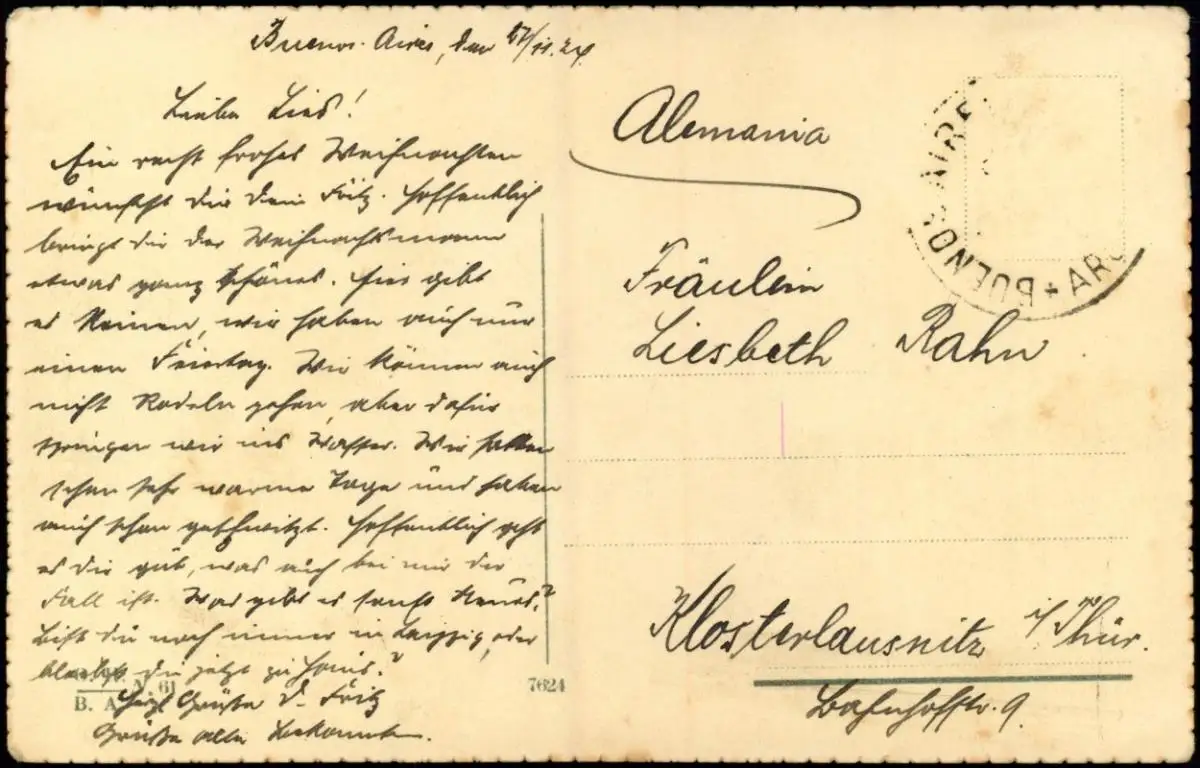 Buenos-Aires, den 27/11.24.
Liebe Lies!
Ein recht frohes Weihnachten
wünscht dir dein Fritz. Hoffentlich
bringt dir der Weihnachtsmann
etwas ganz schönes. Hier gibt
es keinen, wir haben auch nur
einen Feiertag. Wir können auch
nicht Rodeln gehen, aber dafür
springen wir ins Wasser. Wir hatten
schon sehr warme Tage und haben
auch schon geschwitzt. Hoffentlich geht
es dir gut, was auch bei mir der
Fall ist. Was gibt es sonst Neues?
Bist du noch immer in Leipzig, oder
bleibst du jetzt zu Haus?
Herzl Grüße d. Fritz
Grüße alle Bekannten.
B. A. 61
7624
Alemania
BUENOS AIRES + ARG
Fräulein
Liesbeth Rahn
Klosterlausnitz i/Thür.
Bahnhofstr. 9.